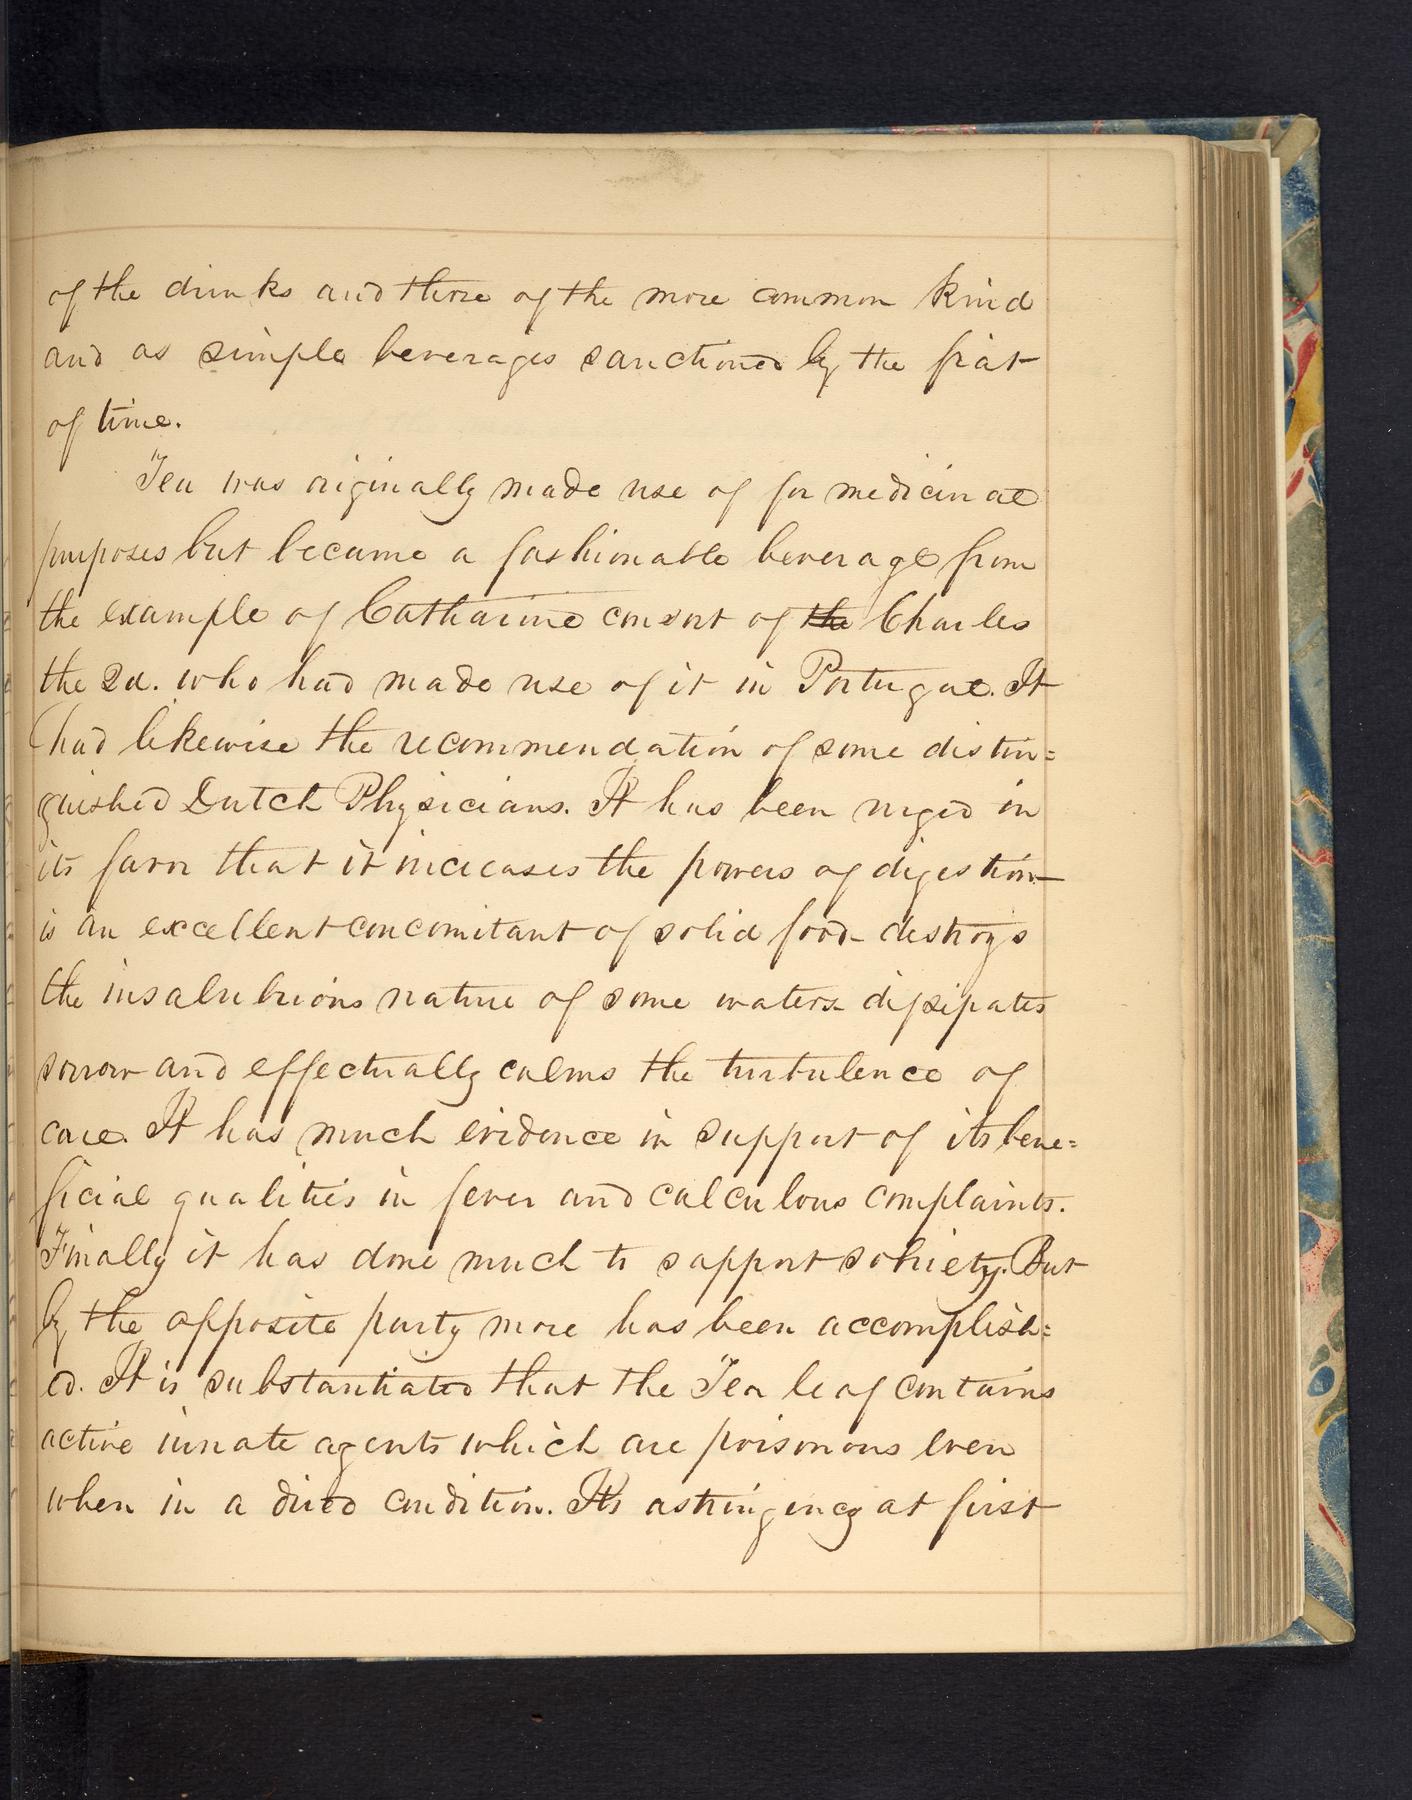 of the drinks and those of the more common kind
and as simple beverages sanctioned by the fiat
of time.
Tea was originally made use of for medicinal
purposes but became a fashionable beverage from
the example of Catharine consort of the Charles
the 2d. who had made use of it in Portugal. It
had likewise the recommendation of some distin=
guished Dutch Physicians. It has been urged in
its favor that it increases the powers of digestion
is an excellent concomitant of solid food - destroys
the insalubrious nature of some waters - dissipates
sorrow and effectually calms the turbulence of
care. It has much evidence in support of its bene=
ficial qualities in fever and calculous complaints.
Finally it has done much to support sobriety. But
by the opposite party more has been accomplish=
ed. It is substantiated that the Tea leaf contains
active innate agents which are poisonous even
when in a dried condition. Its astringency at first